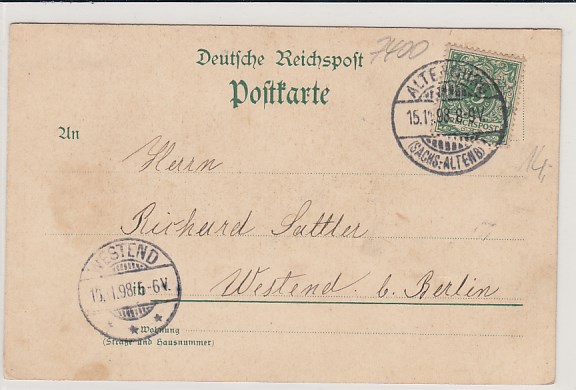 Deutsche Reichspost
7400
Postkarte
ALTENBURG
15.1.98.8-9V.
(SACHS.-ALTENB)
REICHSPOST
An
Herrn
14,-
Richard Sattler
WESTEND
15.1.98 6-6V.
Westend b. Berlin
Wohnung
(Straße und Hausnummer)